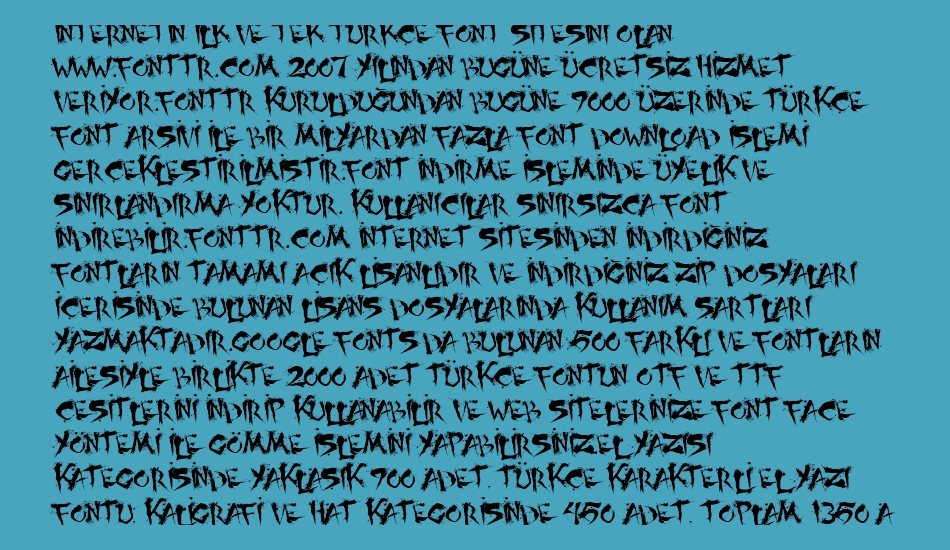 İNTERNETİN İLK VE TEK TÜRKÇE FONT SİTESİNİ OLAN
WWW.FONTTR.COM, 2007 YILINDAN BUGÜNE ÜCRETSİZ HİZMET
VERİYOR.FONTTR KURULDUĞUNDAN BUGÜNE 9000 ÜZERİNDE TÜRKÇE
FONT ARSİVİ İLE BİR MİLYARDAN FAZLA FONT DOWNLOAD İSLEMİ
GERCEKLESTİRİLMİSTİR.FONT İNDİRME İSLEMİNDE ÜYELİK VE
SINIRLANDIRMA YOKTUR. KULLANICILAR SINIRSIZCA FONT
İNDİREBİLİR.FONTTR.COM, İNTERNET SİTESİNDEN İNDİRDİĞİNİZ
FONTLARIN TAMAMI AÇIK LİSANLIDIR VE İNDİRDİĞİNİZ ZİP DOSYALARI
İÇERİSİNDE BULUNAN LİSANS DOSYALARINDA KULLANIM SARTLARI
YAZMAKTADIR.GOOGLE FONTS DA BULUNAN 500 FARKLI VE FONTLARIN
AİLESİYLE BİRLİKTE 2000 ADET TÜRKÇE FONTUN OTF VE TTF
CESİTLERİNİ İNDİRİP KULLANABİLİR VE WEB SİTELERİNİZE FONT FACE
YÖNTEMİ İLE GÖMME İSLEMİNİ YAPABİLİRSİNİZ.EL YAZISI
KATEGORİSİNDE YAKLASIK 900 ADET. TÜRKÇE KARAKTERLİ EL YAZI
FONTU. KALİGRAFİ VE HAT KATEGORİSİNDE 450 ADET. TOPLAM, 1350 A